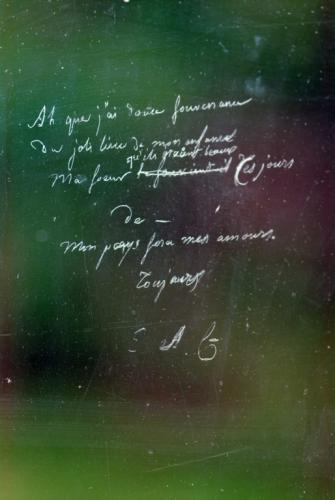 Ah que j'ai douce souvenance
Du joli lieu de mon enfance
qu'ils étaient beaux
Ma soeur Ces jours
de —
Mon pays sera mes amours.
Toujours
E A G